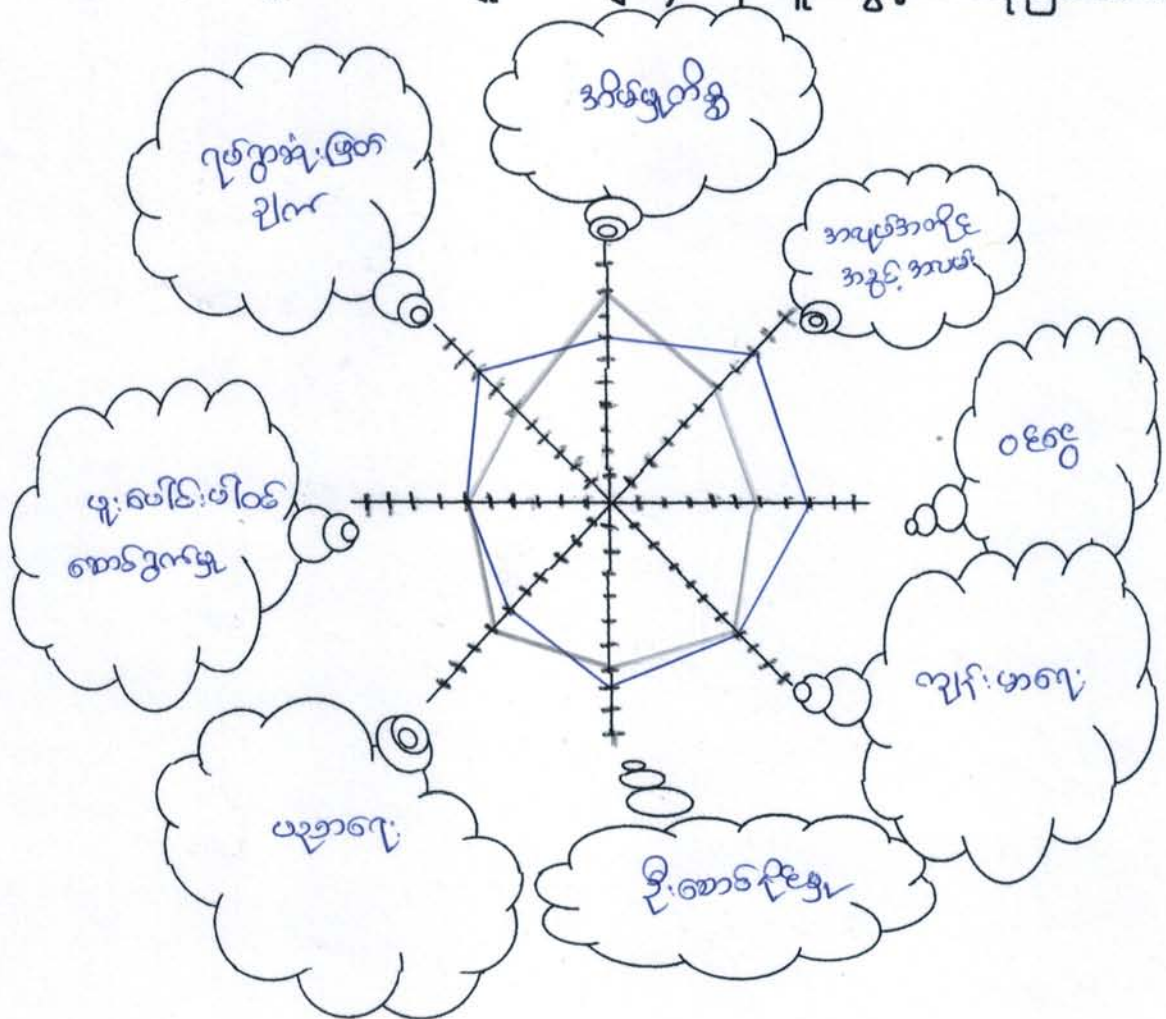 အိမ်မှုကိစ္စ
အလုပ်အကိုင်
အခွင့်အလမ်း
ဝင်ငွေ
ကျန်းမာရေး
ဦးဆောင်နိုင်မှု
ပညာရေး
ပူးပေါင်းပါဝင်
ဆောင်ရွက်မှု
ရပ်ရွာဆုံးဖြတ်
ချက်